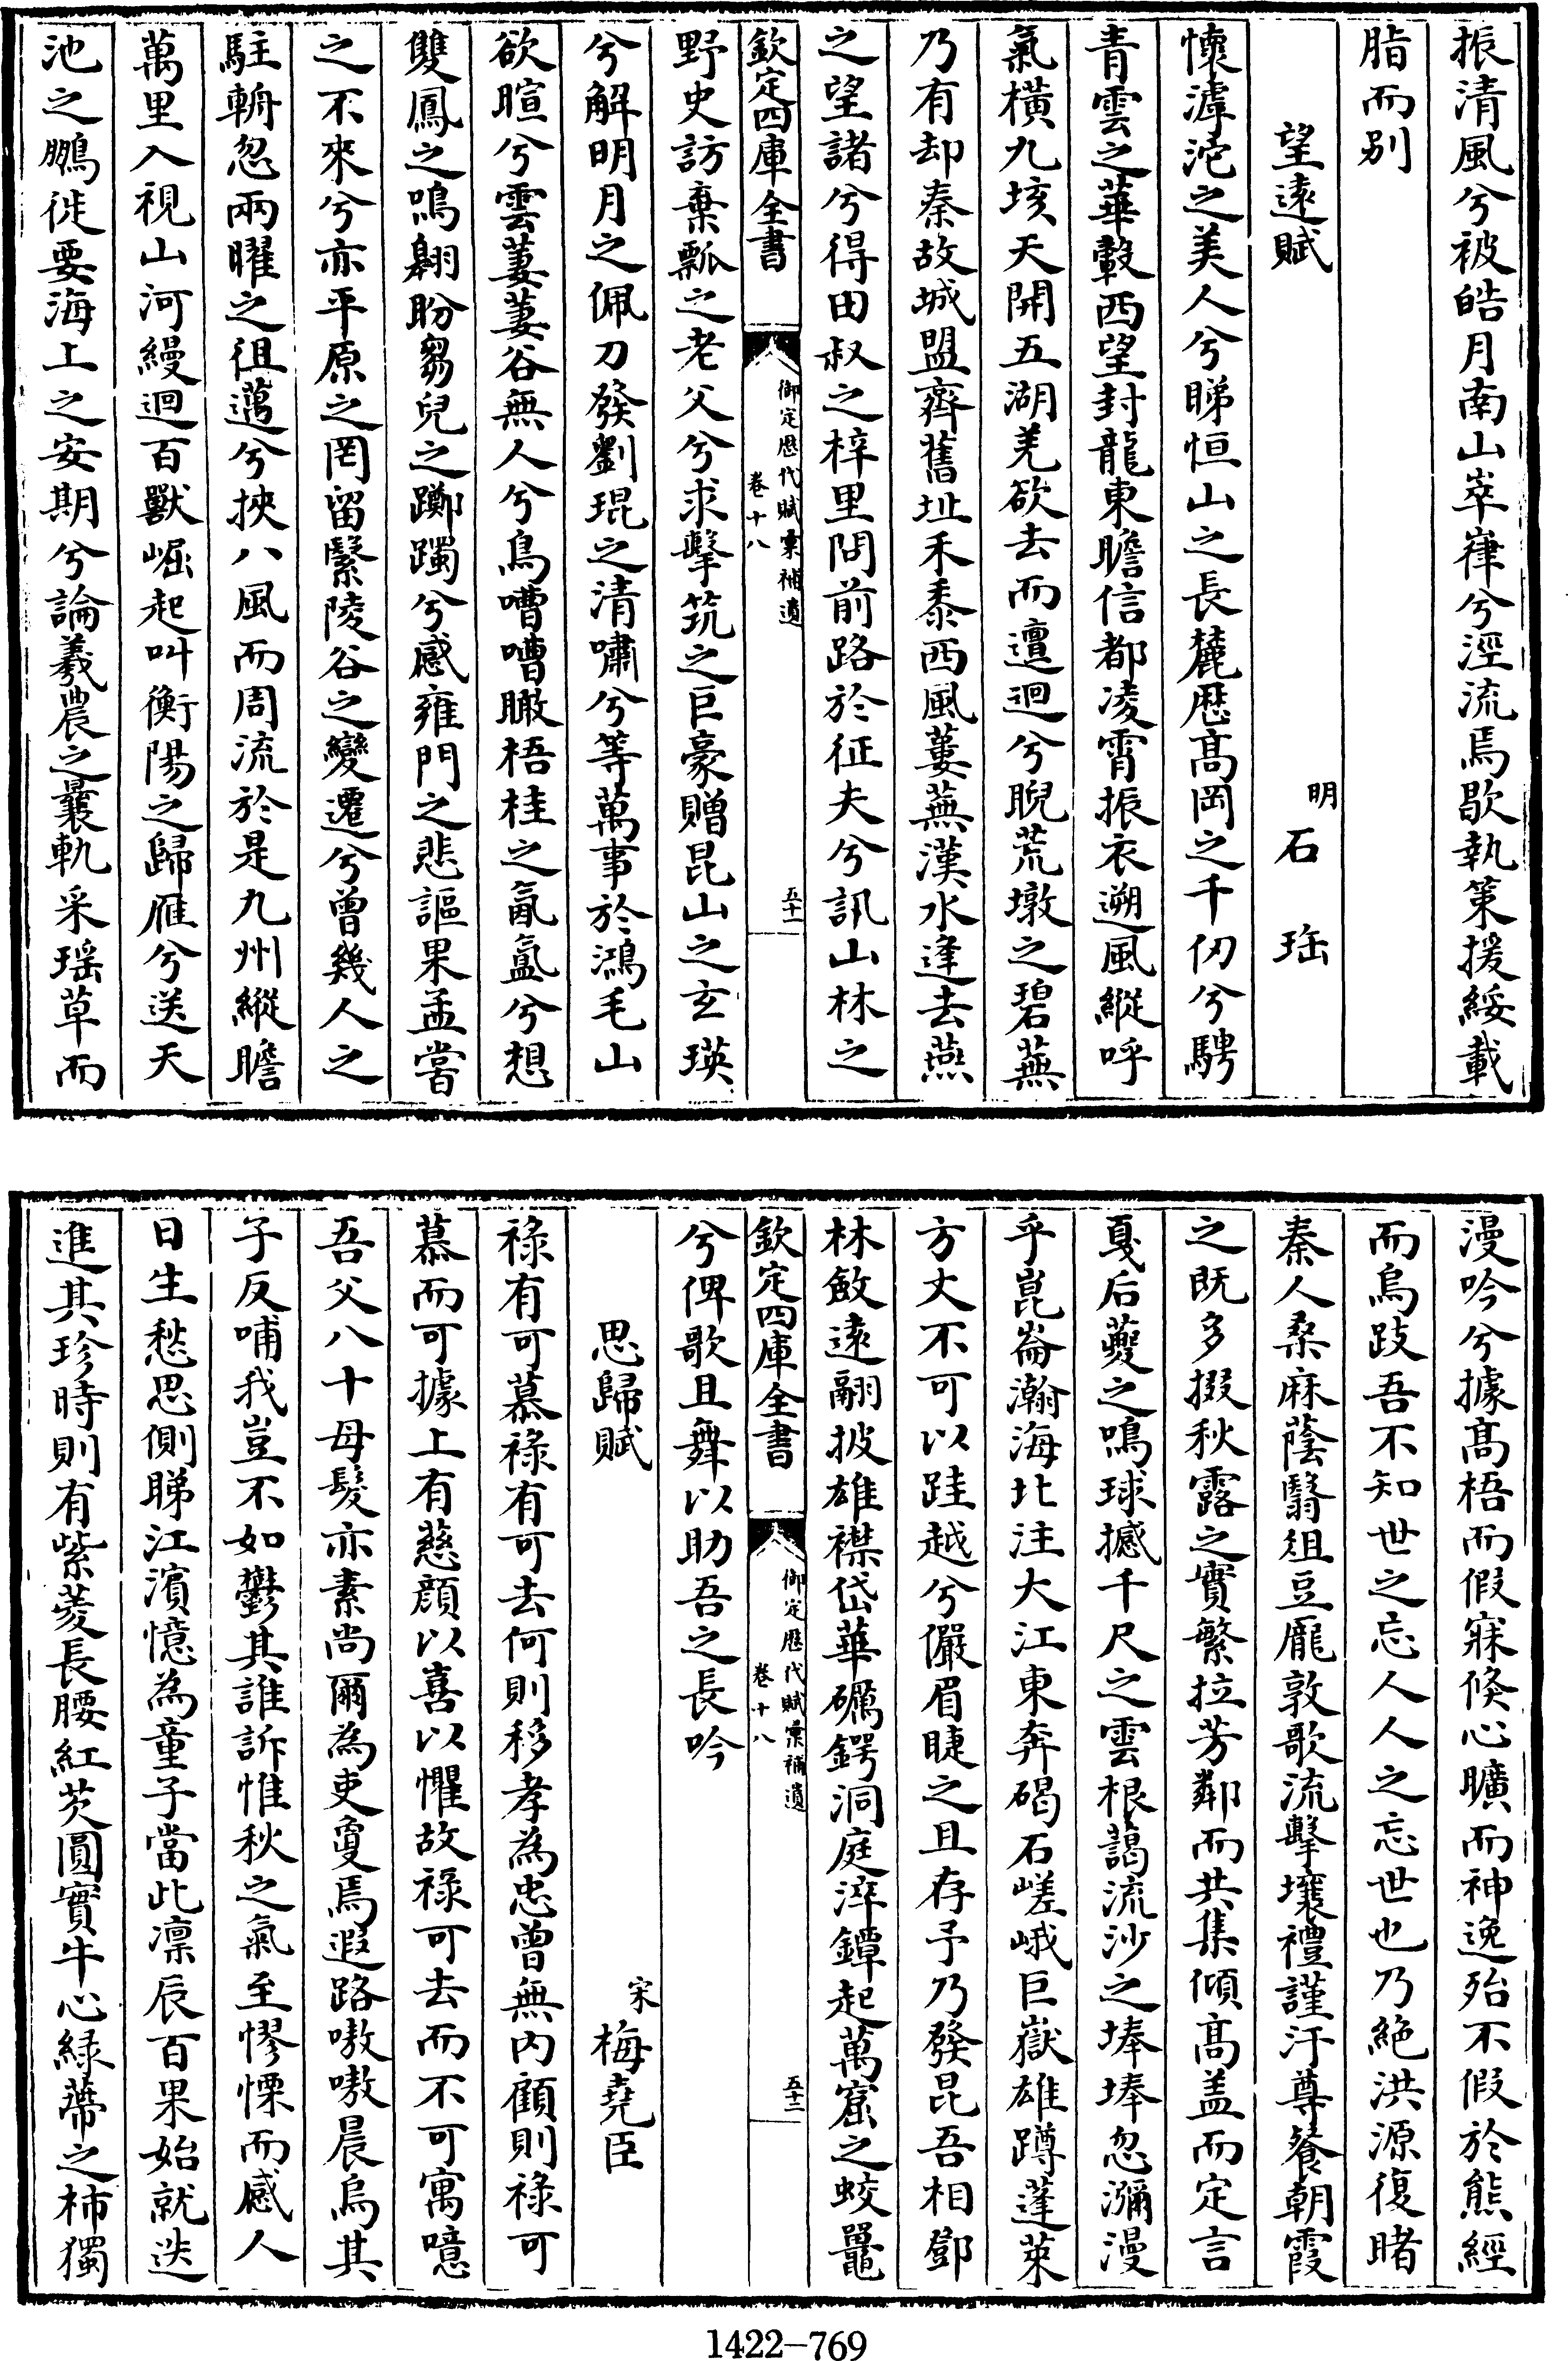 振清風兮被皓月南山崒嵂兮涇流焉歇執策援綏載
脂而别
望遠賦
明石珤
懷滹沱之美人兮睇恒山之長麓厯髙岡之千仞兮騁
青雲之華轂西望封龍東瞻信都凌霄振衣遡風縱呼
氣横九垓天開五湖羌欲去而邅迴兮睨荒墩之碧蕪
乃有却秦故城盟齊舊址禾黍西風蔞蕪漢水逢去燕
之望諸兮得田叔之梓里問前路於征夫兮訊山林之
欽定四庫全書
御定歴代賦彚補遺
卷十八
五十一
野史訪棄瓢之老父兮求擊筑之巨豪贈昆山之玄瑛
兮解明月之佩刀發劉琨之清嘯兮等萬事於鴻毛山
欲暄兮雲萋萋谷無人兮鳥嘈嘈瞰梧桂之氤氲兮想
雙鳳之鳴翱盼芻兒之躑躅兮感雍門之悲謳果孟嘗
之不來兮亦平原之罔留緊陵谷之變遷兮曾幾人之
駐輈忽兩曜之徂邁兮挾八風而周流於是九州縱瞻
萬里入視山河縵迴百獸崛起叫衡陽之歸雁兮送天
池之鵬徙要海上之安期兮論羲農之曩軌采瑶草而
漫吟兮據髙梧而假寐倏心曠而神逸殆不假於熊經
而鳥跂吾不知世之忘人人之忘世也乃絶洪源復睹
秦人桑麻蔭翳俎豆龎敦歌流擊壤禮謹汙尊餐朝霞
之既多掇秋露之實繁拉芳鄰而共集傾髙盖而定言
戛后夔之鳴球撼千尺之雲根藹流沙之埲埲忽瀰漫
乎崑崙瀚海北注大江東奔碣石嵯峨巨嶽雄蹲蓬萊
方丈不可以跬越兮儼眉睫之且存予乃發昆吾相鄧
林斂遠翮披雄襟岱華礪鍔洞庭淬鐔起萬窟之蛟鼉
欽定四庫全書
御定歴代賦彚補遺
卷十八
五十二
兮俾歌且舞以助吾之長吟
思歸賦
宋梅堯臣
禄有可慕禄有可去何則移孝為忠曾無内顧則禄可
慕而可據上有慈顔以喜以懼故禄可去而不可寓噫
吾父八十母髮亦素尚爾為吏敻焉遐路嗷嗷晨烏其
子反哺我豈不如鬱其誰訴惟秋之氣至憀慄而感人
日生愁思側睇江濱憶為童子當此凛辰百果始就迭
進其珍時則有紫菱長腰紅芡圓實牛心緑蔕之柿獨
1422-769